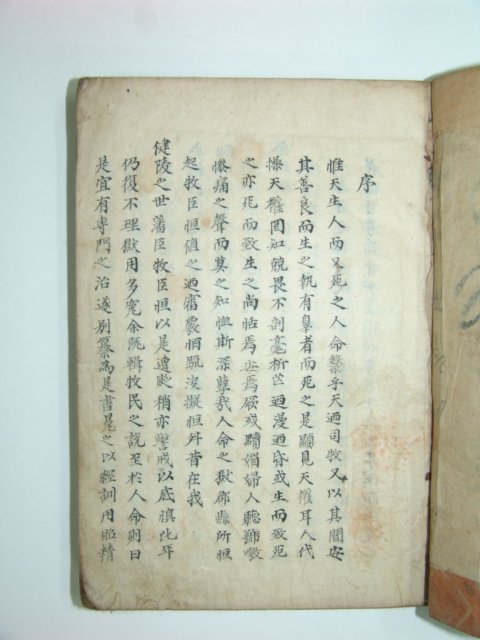 序
惟天生人而又死之人命繫乎天迺司牧又以其間安
其善良而生之執有辜者而死之是顯見天權耳人代
操天權罔知兢畏不剖毫析芒迺漫迺昏或生而致死
之亦死而致生之尚恬焉安焉厥或黷媚婦人聽號嗷
慘痛之聲而莫之知恤斯深孼哉人命之獄郡縣所恒
起牧臣恒値之迺審覈恒疏決擬恒舛昔在我
健陵之世藩臣牧臣恒以是遭貶稍亦警戒以底愼比年
仍復不理獄用多寃余旣輯牧民之說至於人命則曰
是宜有専門之治遂別纂為是書冕之以經訓用昭精